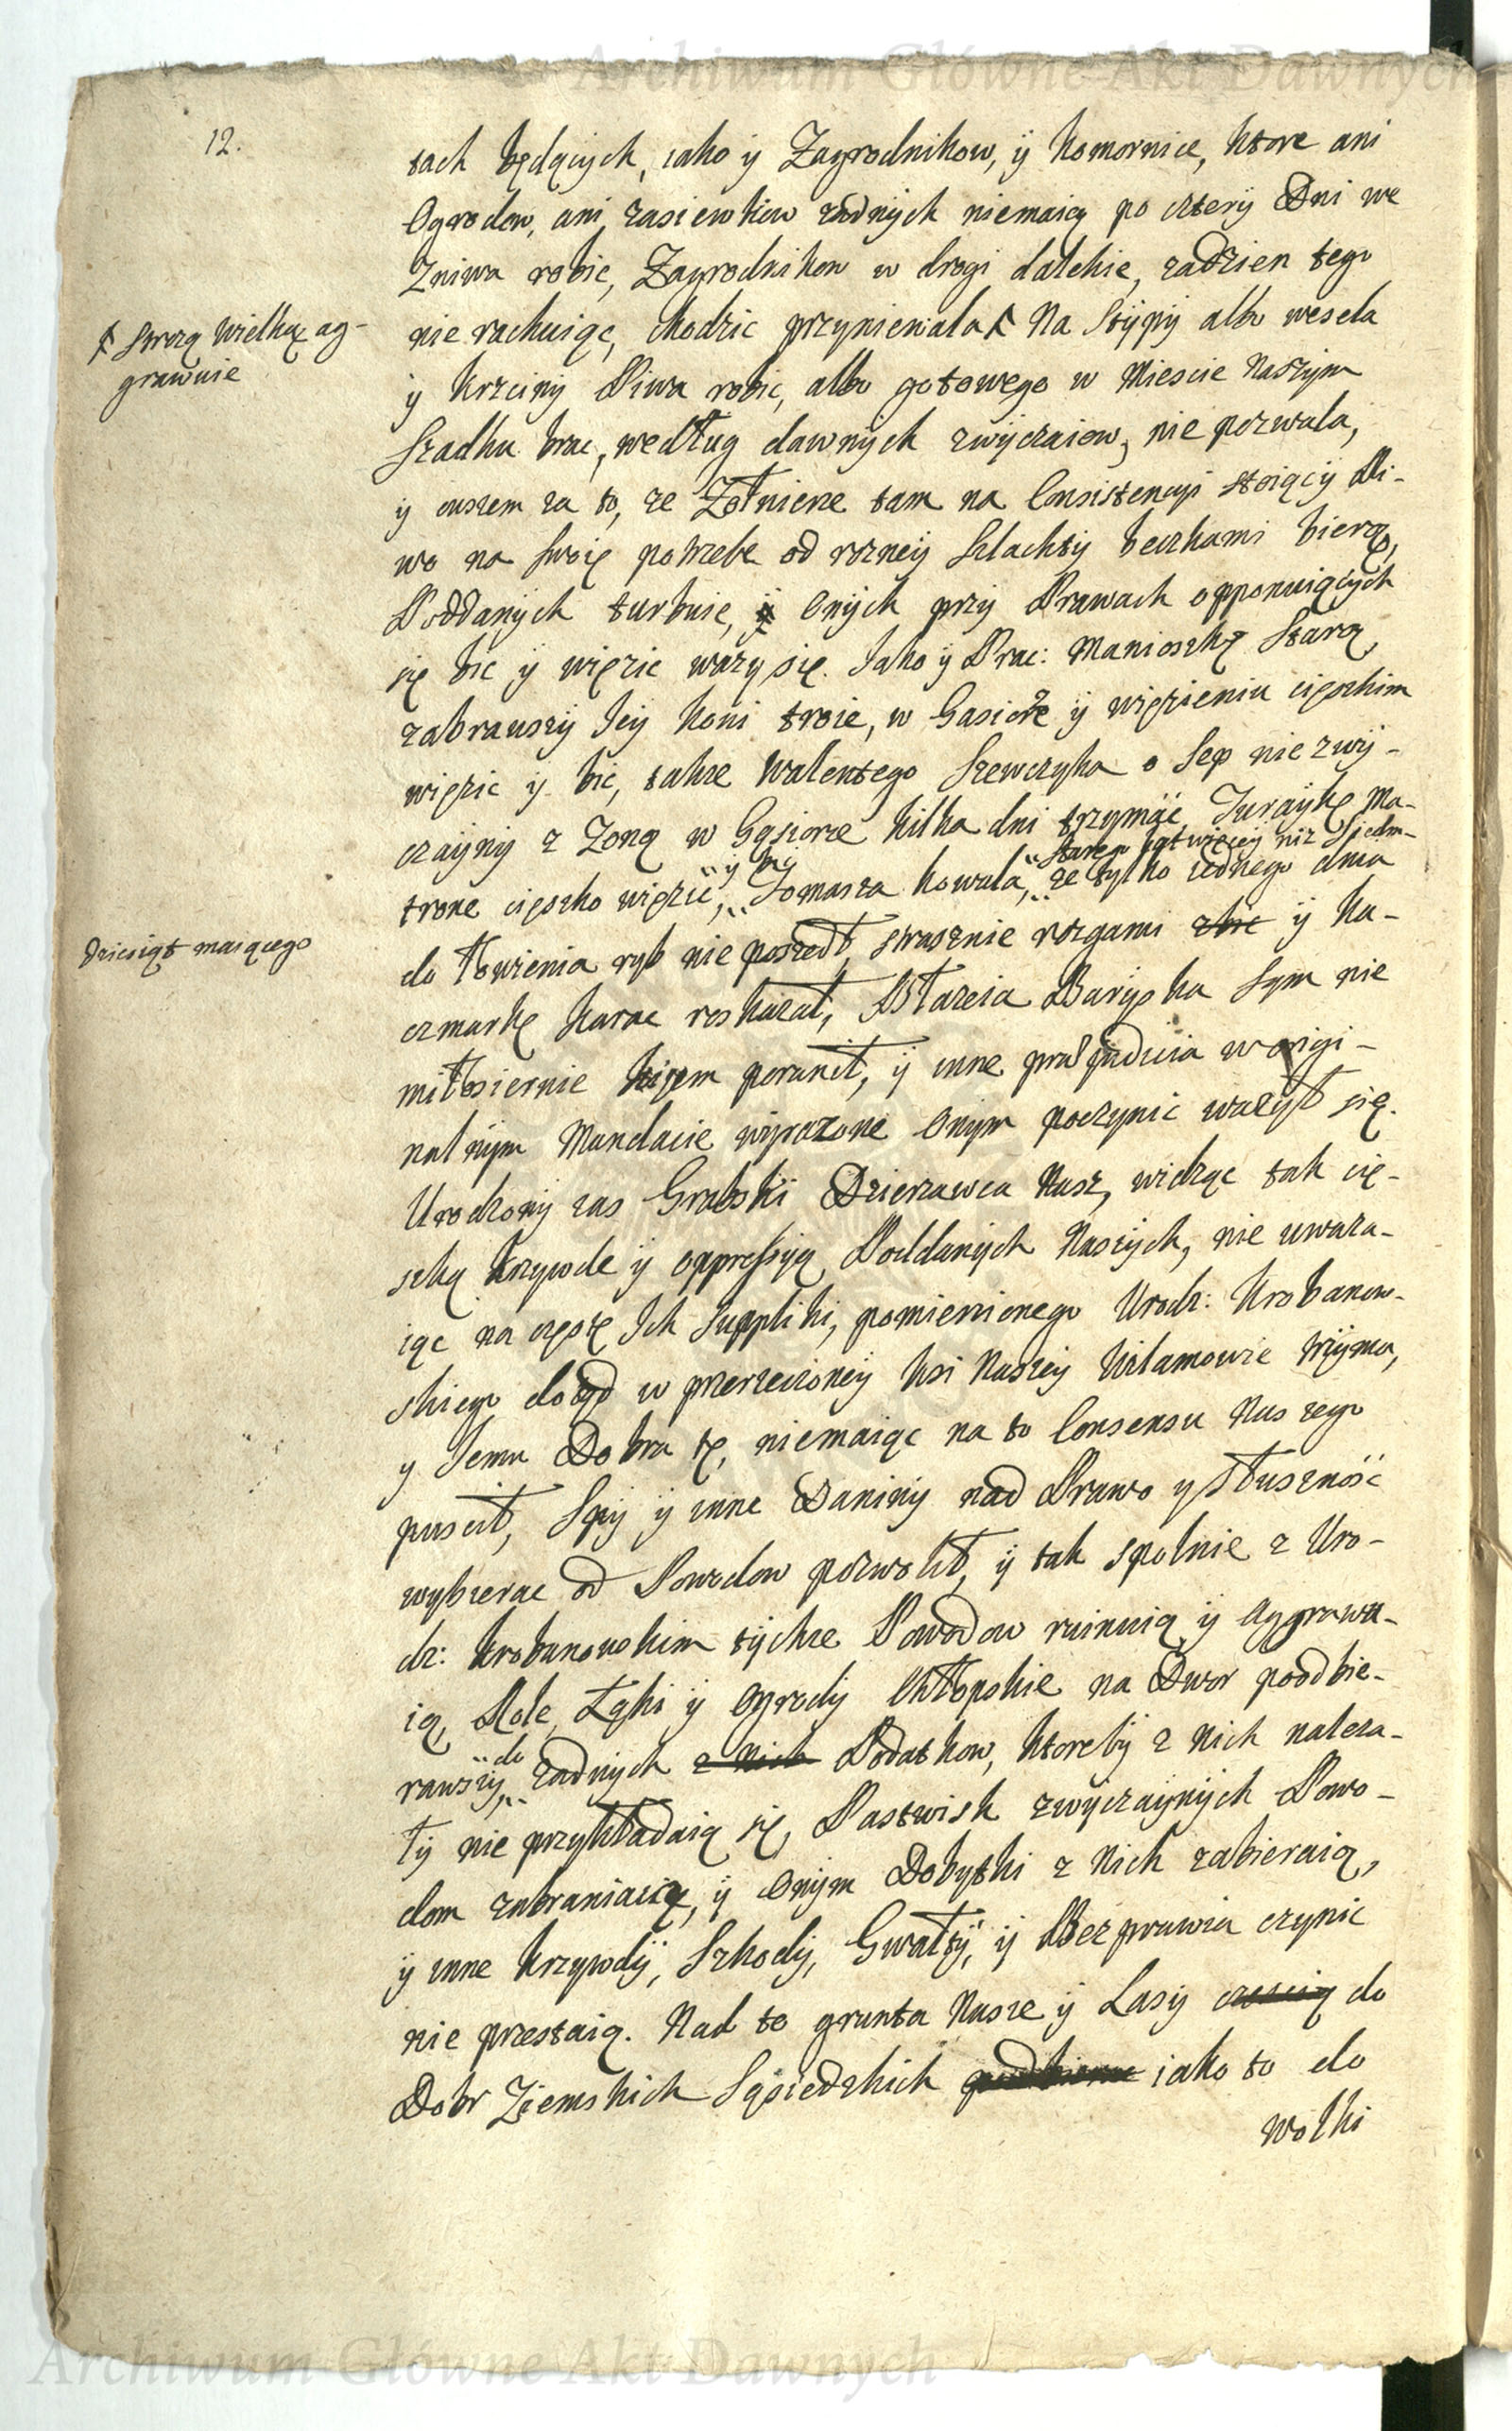 Archiwum Główne Akt Dawnych
12.
tach będących, iako ÿ Zagrodnikow, ÿ Komornice, ktore ani
Ogrodow, ani zasiewkow zadnÿch niemaią po czterÿ Dni we
Zniwa robic, Zagrodnikow w drogi dalekie, zadzien tego
nie rachuiąc, chodzic przyniewala Na Stÿpÿ albo wesela
ÿ Krzciny Piwa robic, albo gotowego w Miescie Naszÿm
Szadku brac, według dawnÿch zwÿczaiow, nie pozwala,
ÿ owszem za to, ze Zołnierze tam na Consistencÿi stoiącÿ Pi-
wo na swoię potrzebe od rozneÿ Szlachtÿ beczkami bierą,
Poddanÿch turbuie, ÿ Onÿch przÿ Prawach opponuiącÿch
się bic ÿ więzic wazÿ się. Iako ÿ Prac: Manioszkę Starą,
zabrawszÿ Ieÿ Koni troie, w Gasiorze ÿ więzieniu cięszkim
więzic ÿ bic, takze Walentego Szewczyka o Sep niezwÿ-
czaÿnÿ z Zoną w Gąsiorze kilka dni trzymac, Jurczÿkę Ma-
tronę cięszko więzic, ÿ bic Tomasza Kowala, Starego lat więceÿ niz Siedm-
ze tylko iednego dnia
do łowienia ryb nie poszedł, strasznie rozgami zbic ÿ Ka-
czmarkę karac roskazał, Błazeia Barÿska Sam nie
miłosiernie kijem poranił, ÿ inne præjudicia w origi-
nalnÿm Mandacie wÿrazone Onÿm poczynic wazÿł się.
Urodzonÿ zas Grabski Dzierzawca Nasz, widząc tak cię-
szką krzywdę ÿ oppressyą Poddanÿch Naszÿch, nie uwaza-
iąc na częste Ich Suppliki, pomienionego Urodz: Krobanow-
skiego dotąd w przerzeczoneÿ Wsi Naszeÿ Wilamowie trzÿma,
y Iemu Dobra te, niemaiąc na to Consensu Naszego
puscił, Spÿ ÿ inne Daninÿ nad Prawo y słusznośc
wybierac od Powodow pozwolił, ÿ tak spolnie z Uro-
dz: Krobanowskim tÿchze Powodow ruinuią ÿ Aggrawu-
ią, Role, Łąki ÿ Ogrodÿ Chłopskie na Dwor poodbie-
rawszÿ, do zadnÿch z nich Podatkow, ktorebÿ z Nich naleza-
łÿ nie przykładaią się, Pastwisk zwÿczaÿnÿch Powo-
dom zabraniaią, ÿ Onÿm Dobytki z Nich zabieraią,
ÿ inne krzywdÿ, Szkodÿ, Gwałtÿ, ÿ Bezprawia czynic
nie przestaią. Nad to grunta Nasze ÿ Lasÿ do
Dobr Ziemskich Sąsiedzkich iako to do
Wolki
strozą Wielką ag-
grawuie
dziesiąt maiącego
Archiwum Główne Akt Dawnych